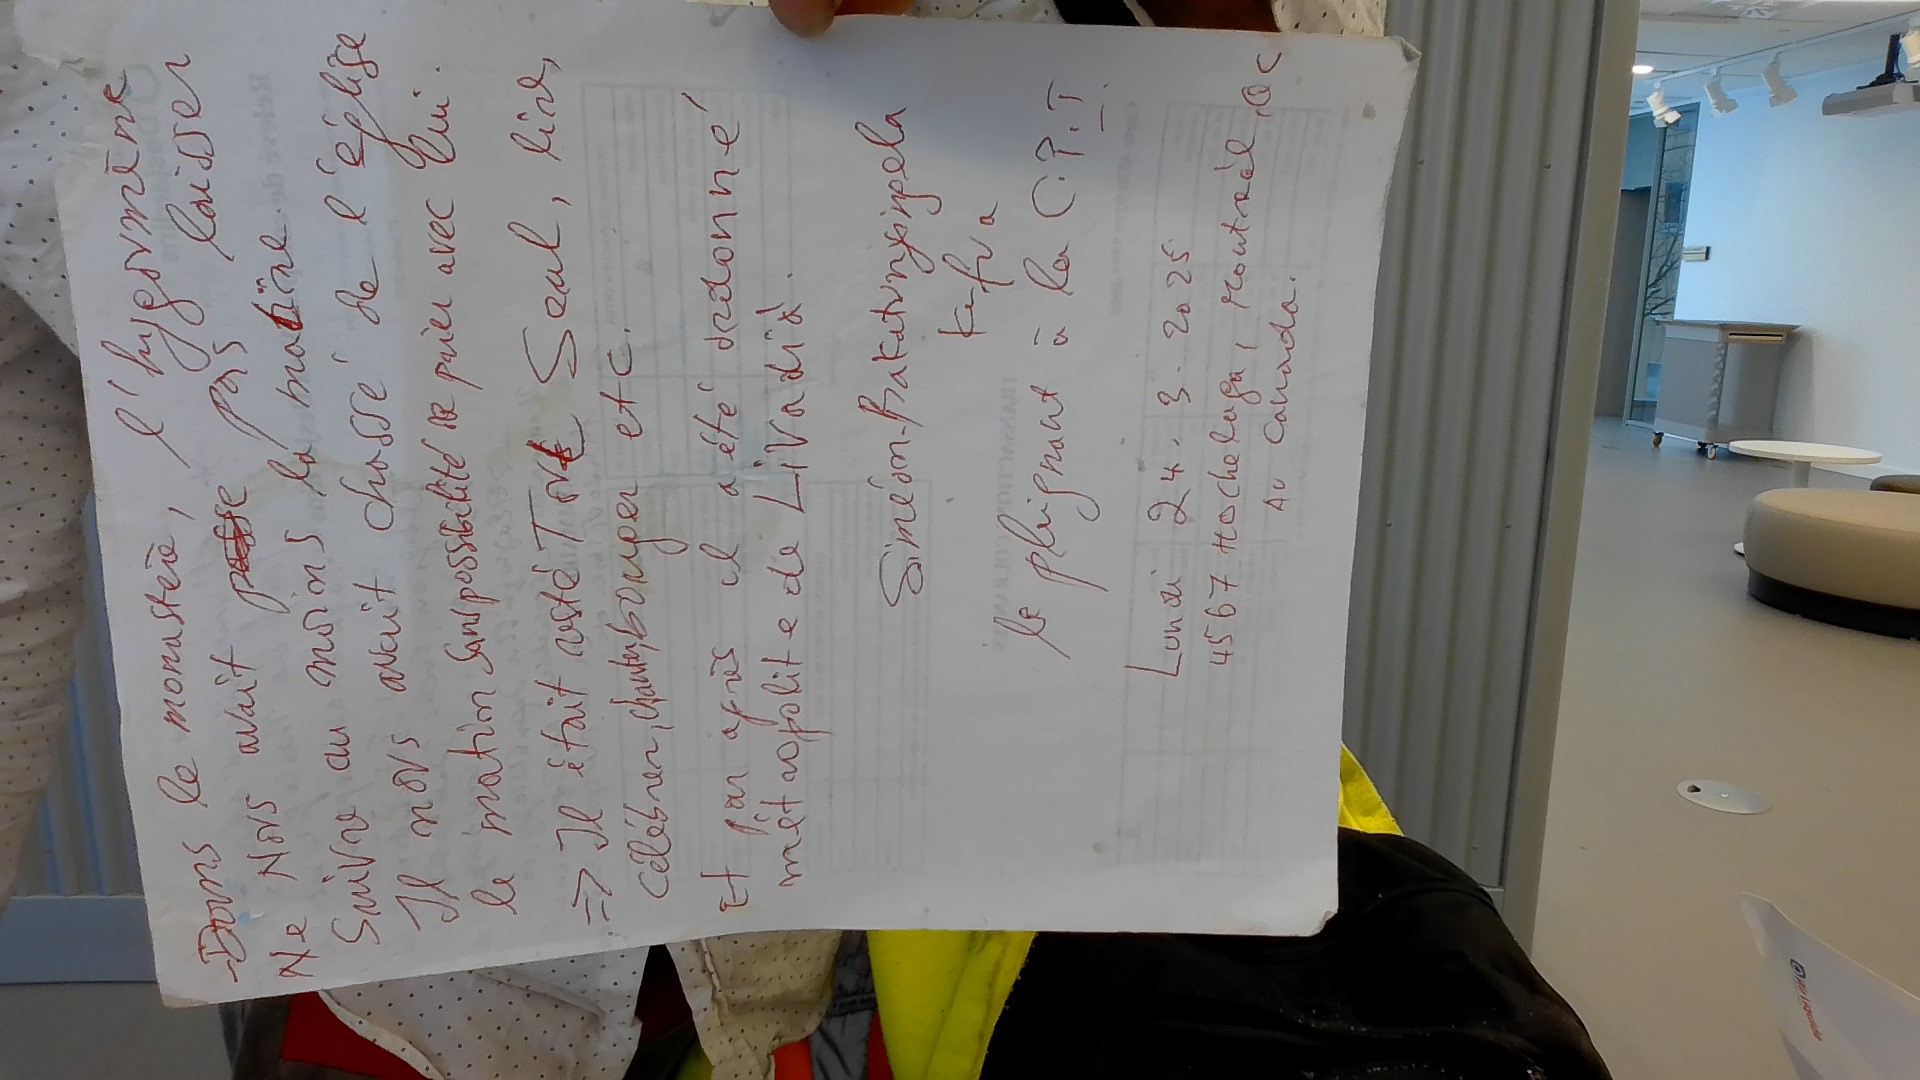 -Dans le monastère, l'hygoumène
Nous avait pas laisser
Ne au moins la matine.
Suivre avait chassé de l'église
Il nous
le matin sans possibilité de prier avec Lui.
=> Il était resté Tout Seul, lire,
célébrer, chanter, bouger etc.
Et par après il a été ordonné
métropolite de Livadia.
Siméon-Bakatunyingela
Kafua
le plaignant à la C.P.I.
Lundi 24. 3. 2025
4567 Hochelaga, Montréal, QC
Au Canada.